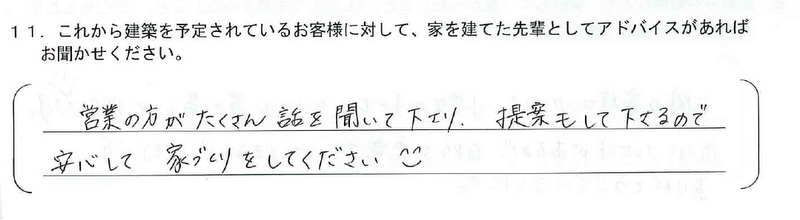 11. これから建築を予定されているお客様に対して、家を建てた先輩としてアドバイスがあれば
お聞かせください。
営業の方がたくさん話を聞いて下さり、提案もして下さるので
安心して家づくりをしてください